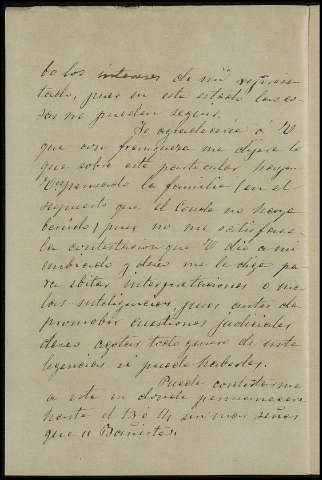 bo los intereses de mi represen-
tado, pues en este estado las co-
sas no pueden seguir.
Le agradeceria á V
que con franqueza me dijera lo
que sobre este particular haya
pensado la familia (en el
supuesto que el Conde no haya
), pues no me satisface
la contestacion que V dio a mi
embiado y deseo me lo diga pa-
ra ebitar interpretaciones o ma-
las inteligencias pues antes de
promober cuestiones judiciales
deseo agotar todo genero de inte-
ligencias si puede haberlas.
Puede contestarme
a esta en donde permanecere
hasta el 13 o 14 sin mas señas
que a Bañista.